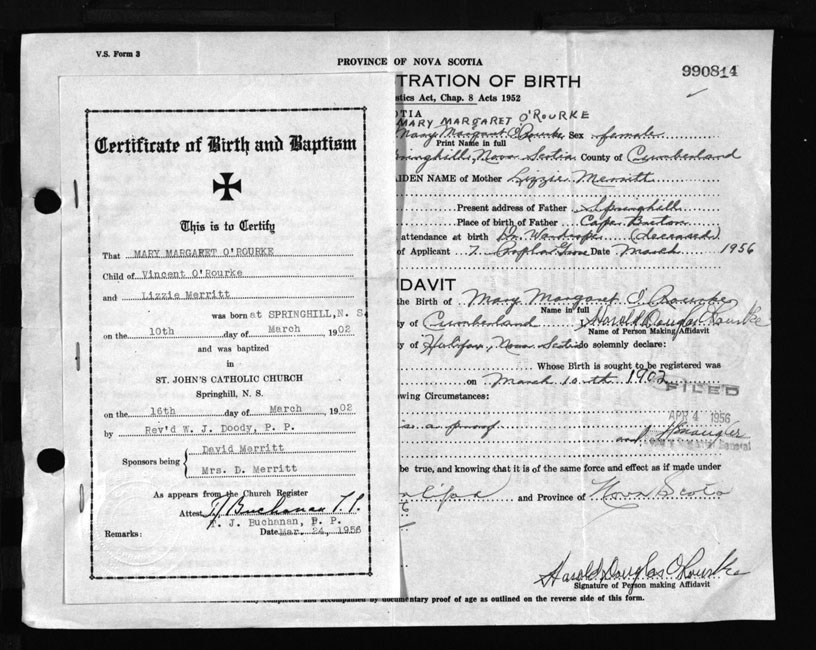 V.S. Form 3
PROVINCE OF NOVA SCOTIA
990814
TRATION OF BIRTH
tistics Act, Chap. 8 Acts 1952
OTIA
MARY MARGARET O'ROURKE
Mary Margaret O'Rourke Sex female
Print Name in full
Springhill, Nova Scotia County of Cumberland
AIDEN NAME of Mother Lizzie Merritt
Present address of Father Springhill
Place of birth of Father Cape Breton
attendance at birth Dr. (deceased)
of Applicant 7 Poplar Grove Date March 1956
IDAVIT
the Birth of Mary Margaret O'Rourke
Name in full
ty of Cumberland I, Harold Douglas O'Rourke
Name of Person Making Affidavit
ty of Halifax, Nova Scotia do solemnly declare:
Whose Birth is sought to be registered was
on March 10th 1902
FILED
owing Circumstances:
APR 4 1956
as a proof
and
be true, and knowing that it is of the same force and effect as if made under
and Province of Nova Scotia
Harold Douglas O'Rourke
Signature of Person making Affidavit
completed and accompanied by documentary proof of age as outlined on the reverse side of this form.
Certificate of Birth and Baptism
This is to Certify
That MARY MARGARET O'ROURKE
Child of Vincent O'Rourke
and Lizzie Merritt
was born at SPRINGHILL, N. S.
on the 10th day of March 1902
and was baptized
in
ST. JOHN'S CATHOLIC CHURCH
Springhill, N. S.
on the 16th day of March 1902
by Rev'd W. J. Doody, P. P.
Sponsors being { David Merritt
Mrs. D. Merritt
As appears from the Church Register
Attest T J Buchanan P.P.
T. J. Buchanan, P. P.
Remarks: Date Mar. 24, 1956